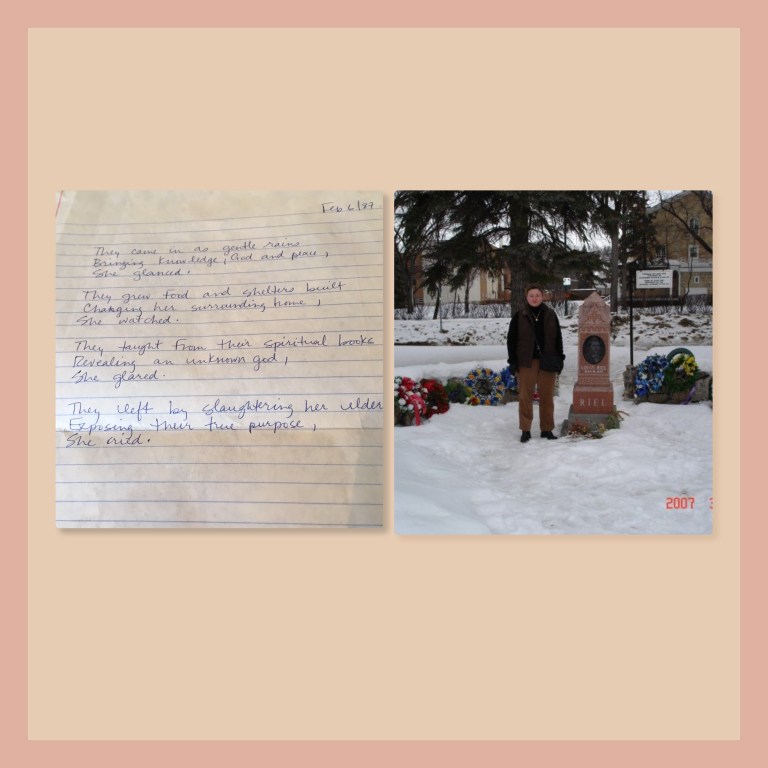 Feb 6/87
They came in as gentle rains
Bringing knowledge, God and peace,
She glanced.
They grew food and shelters built
Changing her surrounding home,
She watched.
They taught from their spiritual books
Revealing an unknown god,
She glared.
They left by slaughtering her elder
Exposing their true purpose,
She cried.
RIEL
2007